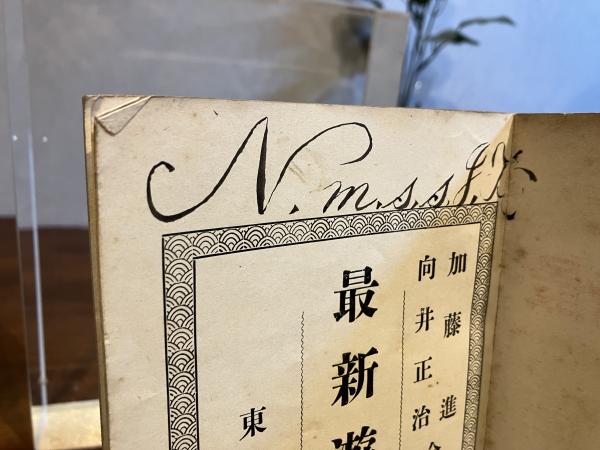 N. m. s. s. f.
加藤進
向井正治
最新遊
東